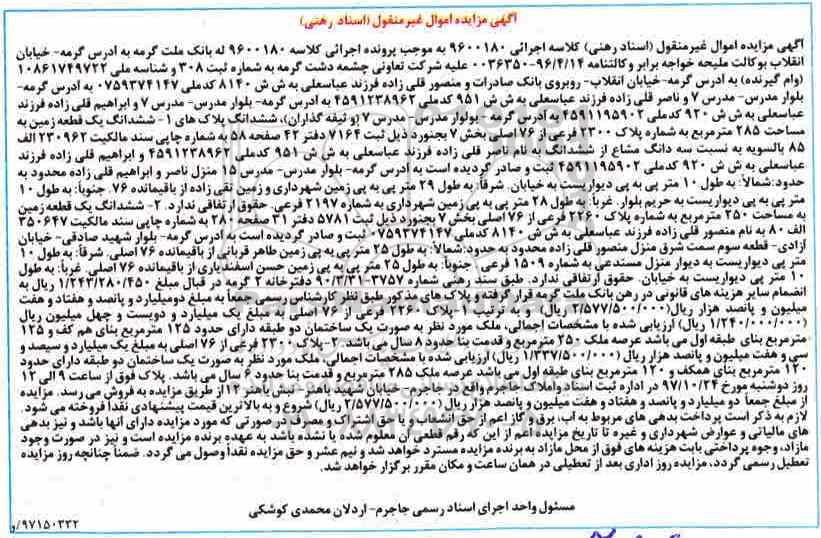 آگهی مزایده اموال غیرمنقول (اسناد رهنی)
آگهی مزایده اموال غیرمنقول (اسناد رهنی) کلاسه اجرائی ۹۶۰۰۱۸۰ به موجب پرونده اجرائی کلاسه ۹۶۰۰۱۸۰ له بانک ملت گرمه به آدرس گرمه- خیابان
انقلاب بوکالت ملیحه خواجه برابر وکالتنامه ۹۶/۴/۱۴-۰۰۳۶۳۵۰ علیه شرکت تعاونی چشمه دشت گرمه به شماره ثبت ۳۰۸ و شناسه ملی ۱۰۸۶۱۷۴۹۷۲۲
(وام گیرنده) به آدرس گرمه-خیابان انقلاب- روبروی بانک صادرات و منصور قلی زاده فرزند عباسعلی به ش ش ۸۱۴۰ کدملی ۰۷۵۹۳۷۴۱۴۷ به آدرس گرمه-
بلوار مدرس- مدرس ۷ و ناصر قلی زاده فرزند عباسعلی به ش ش ۹۵۱ کدملی ۴۵۹۱۲۳۸۹۶۲ به آدرس گرمه- بلوار مدرس- مدرس ۷ و ابراهیم قلی زاده فرزند
عباسعلی به ش ش ۹۲۰ کدملی ۴۵۹۱۱۹۵۹۰۲ به آدرس گرمه - بولوار مدرس- مدرس ۷ (و ثیقه گذاران)، ششدانگ پلاک های ۱- ششدانگ یک قطعه زمین به
مساحت ۲۸۵ مترمربع به شماره پلاک ۲۳۰۰ فرعی از ۷۶ اصلی بخش ۷ بجنورد ذیل ثبت ۷۱۶۴ دفتر ۴۲ صفحه ۵۸ به شماره چاپی سند مالکیت ۲۳۰۹۶۲ الف
۸۵ بالسویه به نسبت سه دانگ مشاع از ششدانگ به نام ناصر قلی زاده فرزند عباسعلی به ش ش ۹۵۱ کدملی ۴۵۹۱۲۳۸۹۶۲ و ابراهیم قلی زاده فرزند
عباسعلی به ش ش ۹۲۰ کدملی ۴۵۹۱۱۹۵۹۰۲ ثبت و صادر گردیده است به آدرس گرمه- بلوار مدرس- مدرس ۱۵ منزل ناصر و ابراهیم قلی زاده محدود به
حدود:شمالاً: به طول ۱۰ متر پی به پی دیواریست به خیابان. شرقاً: به طول ۲۹ متر پی به پی زمین شهرداری و زمین تقی زاده از باقیمانده ۷۶. جنوباً: به طول ۱۰
متر پی به پی دیواریست به حریم بلوار. غرباً: به طول ۲۸ متر پی به پی زمین شهرداری به شماره ۲۱۹۷ فرعی. حقوق ارتفاقی ندارد. ۲- ششدانگ یک قطعه زمین
به مساحت ۲۵۰ مترمربع به شماره پلاک ۲۲۶۰ فرعی از ۷۶ اصلی بخش ۷ بجنورد ذیل ثبت ۵۷۸۱ دفتر ۳۱ صفحه ۲۸۰ به شماره چاپی سند مالکیت ۳۵۰۶۴۷
الف ۸۰ به نام منصور قلی زاده فرزند عباسعلی به ش ش ۸۱۴۰ کدملی ۰۷۵۹۳۷۴۱۴۷ ثبت و صادر گردیده است به آدرس گرمه- بلوار شهید صادقی- خیابان
آزادی- قطعه سوم سمت شرق منزل منصور قلی زاده محدود به حدود:شمالاً: به طول ۲۵ متر پی به پی زمین طاهر قربانی از باقیمانده ۷۶ اصلی. شرقاً: به طول ۱۰
متر پی دیواریست به دیوار منزل مستدعی به شماره ۱۵۰۹ فرعی؛ جنوباً: به طول ۲۵ متر پی به پی زمین حسن اسفندیاری از باقیمانده ۷۶ اصلی. غرباً: به طول
۱۰ متر پی دیواریست به خیابان. حقوق ارتفاقی ندارد. طبق سند رهنی شماره ۳۷۵۷-۹۰/۳/۳۱ دفترخانه ۲ گرمه در قبال مبلغ ۱/۲۴۳/۲۸۰/۴۵۰ ریال به
انضمام سایر هزینه های قانونی در رهن بانک ملت گرمه قرار گرفته و پلاک های مذکور طبق نظر کارشناس رسمی جمعاً به مبلغ دومیلیارد و پانصد و هفتاد و هفت
میلیون و پانصد هزار ریال(۲/۵۷۷/۵۰۰/۰۰۰ ریال) و به ترتیب ۱-پلاک ۲۲۶۰ فرعی از ۷۶ اصلی به مبلغ یک میلیارد و دویست و چهل میلیون ریال
(۱/۲۴۰/۰۰۰/۰۰۰ ریال) ارزیابی شده با مشخصات اجمالی، ملک مورد نظر به صورت یک ساختمان دو طبقه دارای حدود ۱۲۵ مترمربع بنای هم کف و ۱۲۵
مترمربع بنای طبقه اول می باشد عرصه ملک ۲۵۰ مترمربع و قدمت بنا حدود ۸ سال می باشد. ۲-پلاک ۲۳۰۰ فرعی از ۷۶ اصلی به مبلغ یک میلیارد و سیصد و
سی و هفت میلیون و پانصد هزار ریال (۱/۳۳۷/۵۰۰/۰۰۰ ریال) ارزیابی شده با مشخصات اجمالی، ملک مورد نظر به صورت یک ساختمان دو طبقه دارای حدود
۱۲۰ مترمربع بنای همکف و ۱۲۰ مترمربع بنای طبقه اول می باشد عرصه ملک ۲۸۵ مترمربع و قدمت بنا حدود ۶ سال می باشد. پلاک فوق از ساعت ۹ الی ۱۲
روز دوشنبه مورخ ۹۷/۱۰/۲۴ در اداره ثبت اسناد و املاک جاجرم واقع در جاجرم- خیابان شهید باهنر - نبش باهنر ۱۲ از طریق مزایده به فروش می رسد. مزایده
از مبلغ جمعاً دو میلیارد و پانصد و هفتاد و هفت میلیون و پانصد هزار ریال (۲/۵۷۷/۵۰۰/۰۰۰ ریال) شروع و به بالاترین قیمت پیشنهادی نقداً فروخته می شود.
لازم به ذکر است پرداخت بدهی های مربوط به آب، برق، گاز اعم از حق انشعاب و یا حق اشتراک و مصرف در صورتی که مورد مزایده دارای آنها باشد و نیز بدهی
های مالیاتی و عوارض شهرداری و غیره تا تاریخ مزایده اعم از این که رقم قطعی آن معلوم شده یا نشده باشد به عهده برنده مزایده است و نیز در صورت وجود
مازاد، وجوه پرداختی بابت هزینه های فوق از محل مازاد به برنده مزایده مسترد خواهد شد و نیم عشر و حق مزایده نقداً وصول می گردد. ضمناً چنانچه روز مزایده
تعطیل رسمی گردد، مزایده روز اداری بعد از تعطیلی در همان ساعت و مکان مقرر برگزار خواهد شد.
مسئول واحد اجرای اسناد رسمی جاجرم- اردلان محمدی کوشکی
۹۷۱۵۰۳۳۲/و